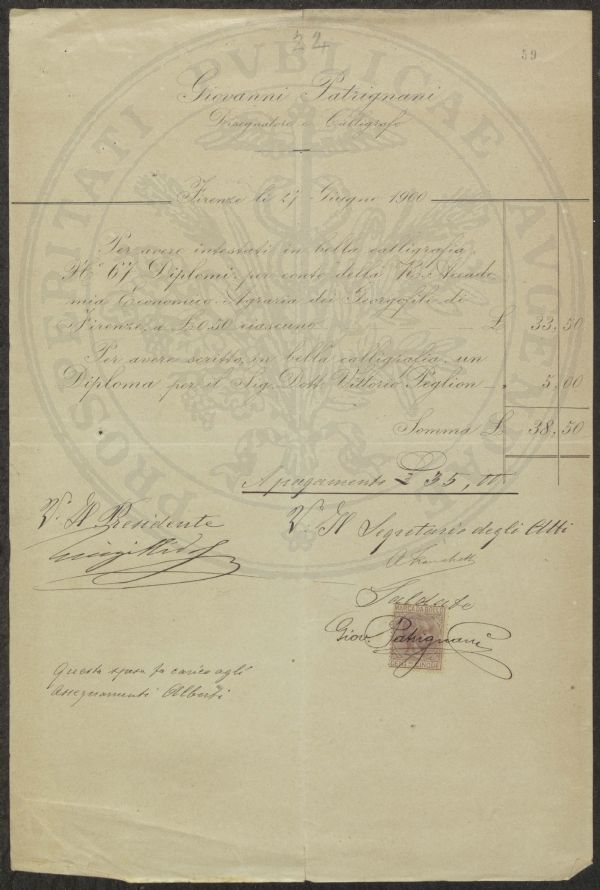 22
59
Giovanni Patrignani
Disegnatore e Calligrafo
Firenze li 27 Giugno 1900
Per avere intestati in bella calligrafia
No 67 Diplomi per conto della R. Accade
mia Economico-Agraria dei Georgofili di
Firenze, a L. 0.50 ciascuno L 33,50
Per avere scritto, in bella calligrafia, un
Diploma per il Sig. Dott. Vittorio Peglion " 5,00
Somma L 38,50
A pagamento £ 35,00
V. Il Presidente
V. Il Segretario degli Atti
Luigi
Saldato
MARCA DA BOLLO
Giov. Patrignani
Questa spesa fa carico agli
assegnamenti Alberti
PROSPERITATI PVBLICAE AVGENDAE